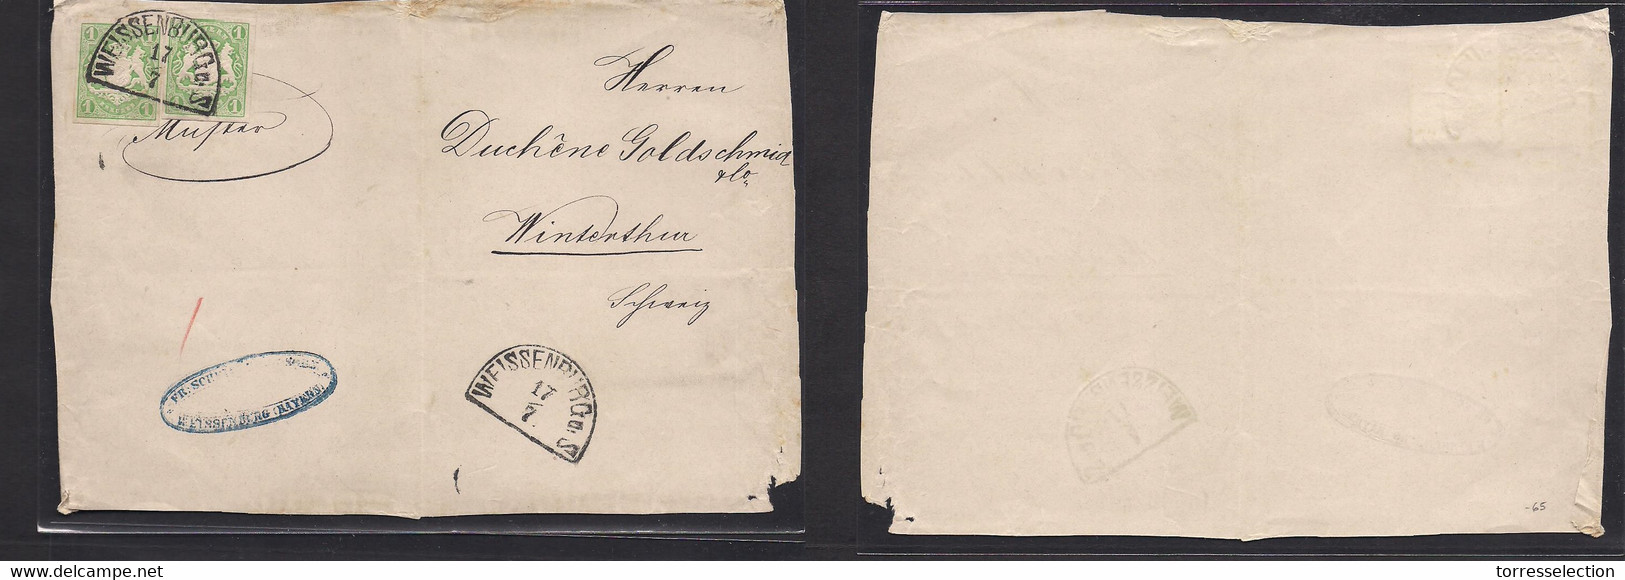 1 1
1 1
WEISSENBURG a. S.
17
7
Muster
Herren
Duchêne Goldschmid
& Co
Winterthur
Schweiz
WEISSENBURG a. S.
17
7.
FR. SCH
WEISSENBURG (BAYERN.
-65
www.delcampe.net
torresselection